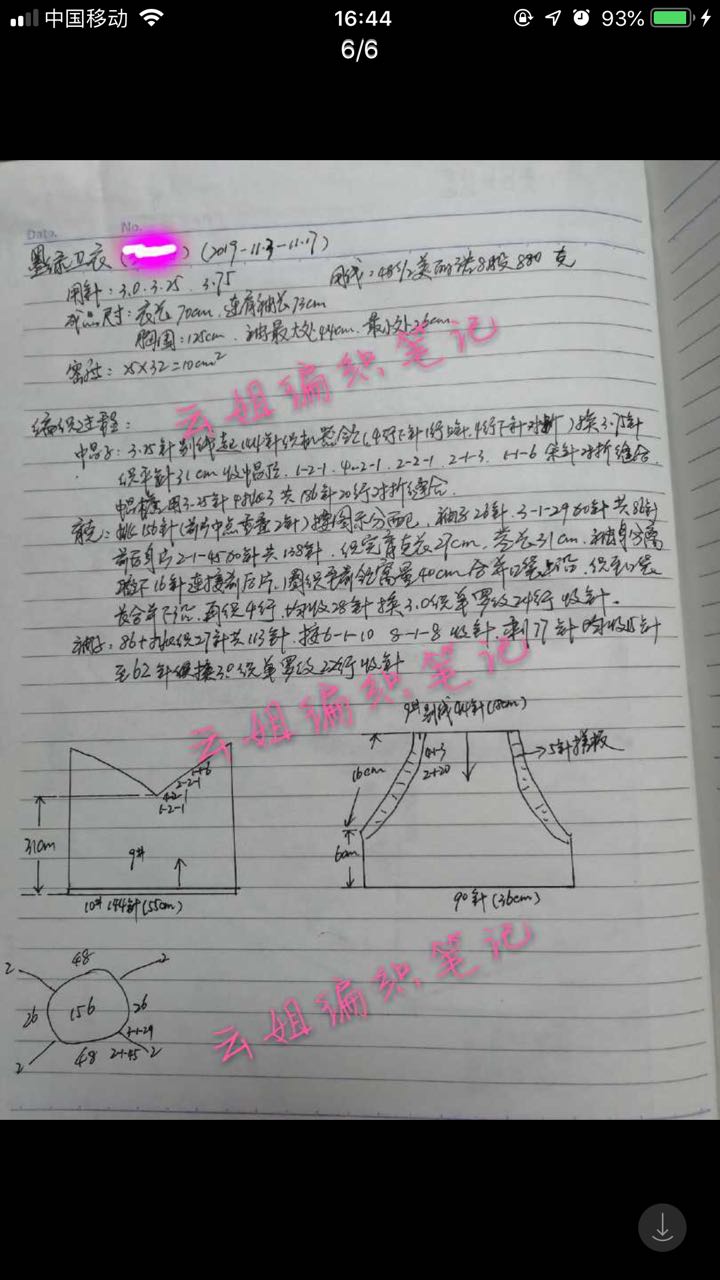 中国移动
16:44
93%
6/6
Date.
No.
墨绿卫衣 ( ) (2019-11.3-11.17)
用针：3.0.3.25 3.75
用线：48/2美丽诺8股 880 克
成品尺寸：衣长70cm，连肩袖长73cm
胸围：125cm. 袖最大处44cm. 最小处26cm
密度： 25X32=10cm²
云姐编织笔记
编织过程：
帽子：3.25针别线起144针织机器 (4行下针1行上针.4行下针对折) 换3.75针
织平针31cm收帽顶. 1-2-1 4-2-1 2-2-1 2-1-3 1-1-6 余针对折缝合.
帽 用3.25针 共156针20行对折缝合.
育克：挑156针(前片中点重叠2针)按图示分配，袖子26针. 3-1-29 60针共86针
前后身片2-1-45 90针共138针. 织完育克长27cm. 31cm. 袖身分离
腋下16针连接前后片，圈织至 40cm合并口袋上沿. 织至口袋
长合并下沿. 再织4行. 均收28针换3.0织单罗纹24行收针.
袖子：86+ 27针共113针. 按6-1-10 8-1-8 收针. 剩77针均收15针
至62针 换3.0织单罗纹22行收针
云姐编织笔记
9#别线44针(18cm)
16cm
4-1-3
2-1-20
5针搓板
6cm
90针(36cm)
1-1-6
2-2-1
4-2-1
1-2-1
31cm
9#
10# 144针(55cm)
48
2
2
26
156
26
3-1-29
2
48
2-1-45
2
云姐编织笔记